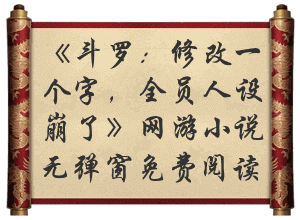 《斗罗：修改一
个字，全员人设
崩了》网游小说
无弹窗免费阅读